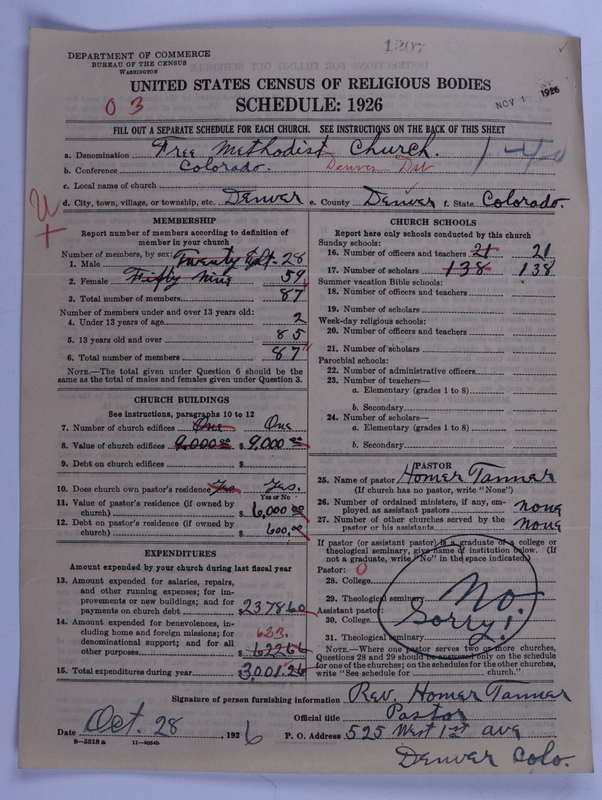 1207
DEPARTMENT OF COMMERCE
BUREAU OF THE CENSUS
WASHINGTON
UNITED STATES CENSUS OF RELIGIOUS BODIES
SCHEDULE: 1926
NOV 1 1926
0 3
FILL OUT A SEPARATE SCHEDULE FOR EACH CHURCH. SEE INSTRUCTIONS ON THE BACK OF THIS SHEET
a. Denomination Free Methodist Church.
b. Conference Colorado. Denver Dst
c. Local name of church
d. City, town, village, or township, etc. Denver e. County Denver f. State Colorado.
MEMBERSHIP
Report number of members according to definition of
member in your church
Number of members, by sex:
1. Male Twenty Eght. 28
2. Female Fifty Nine 59
3. Total number of members 87
Number of members under and over 13 years old:
4. Under 13 years of age 2
5. 13 years old and over 85
6. Total number of members 87
NOTE.—The total given under Question 6 should be
same as the total of males and females given under Question 3.
CHURCH BUILDINGS
See instructions, paragraphs 10 to 12
7. Number of church edifices One One
8. Value of church edifices 9,000.00 $ 9,000.00
9. Debt on church edifices $
10. Does church own pastor's residence Yes Yes.
Yes or No
11. Value of pastor's residence (if owned by
church) $ 6,000.00
12. Debt on pastor's residence (if owned by
church) $ 600.00
EXPENDITURES
Amount expended by your church during last fiscal year
13. Amount expended for salaries, repairs,
and other running expenses; for im-
provements or new buildings; and for
payments on church debt $ 2378.60
14. Amount expended for benevolences, in-
cluding home and foreign missions; for
denominational support; and for all
other purposes $ 622.66
623.
15. Total expenditures during year $ 3,001.26
CHURCH SCHOOLS
Report here only schools conducted by this church
Sunday schools:
16. Number of officers and teachers 21 21
17. Number of scholars 138 138
Summer vacation Bible schools:
18. Number of officers and teachers
19. Number of scholars
Week-day religious schools:
20. Number of officers and teachers
21. Number of scholars
Parochial schools:
22. Number of administrative officers
23. Number of teachers—
a. Elementary (grades 1 to 8)
b. Secondary
24. Number of scholars—
a. Elementary (grades 1 to 8)
b. Secondary
PASTOR
25. Name of pastor Homer Tanner
(If church has no pastor, write "None")
26. Number of ordained ministers, if any, em-
ployed as assistant pastors none
27. Number of other churches served by the
pastor or his assistants none
If pastor (or assistant pastor) is a graduate of a college or
theological seminary, give name of institution below. (If
not a graduate, write "No" in the space indicated.)
Pastor: 0
28. College
29. Theological seminary No
Assistant pastor:
30. College Sorry!
31. Theological seminary
NOTE.—Where one pastor serves two or more churches,
Questions 28 and 29 should be answered only on the schedule
for one of the churches; on the schedules for the other churches,
write "See schedule for church."
Signature of person furnishing information Rev. Homer Tanner
Official title Pastor
Date Oct. 28, 1926 P. O. Address 525 West 1st ave
6—5518 a 11—9054b
Denver Colo.